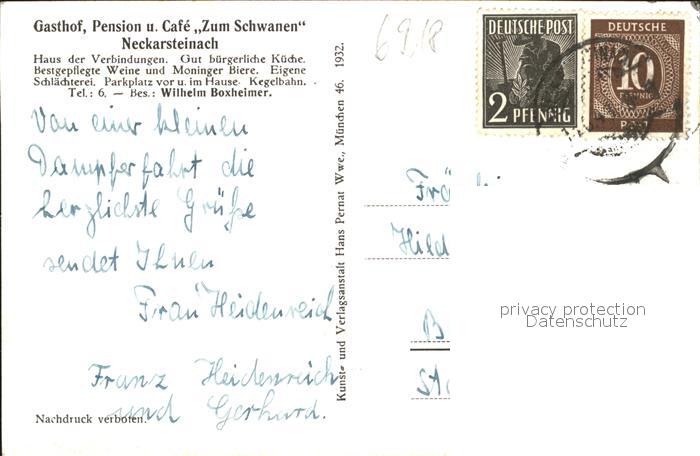 Gasthof, Pension u. Café „Zum Schwanen"
Neckarsteinach
Haus der Verbindungen. Gut bürgerliche Küche.
Bestgepflegte Weine und Moninger Biere. Eigene
Schlächterei. Parkplatz vor u. im Hause. Kegelbahn.
Tel.: 6. — Bes.: Wilhelm Boxheimer.
Von einer kleinen
Dampferfahrt die
herzlichste Grüße
sendet Ihnen
Frau Heidenreich
Franz Heidenreich
und Gerhard.
Nachdruck verboten.
Kunst- und Verlagsanstalt Hans Pernat Wwe., München 46. 1932.
6918
DEUTSCHE POST
2 PFENNIG
DEUTSCHE
10
PFENNIG
Frä
Hild
B
privacy protection
Datenschutz